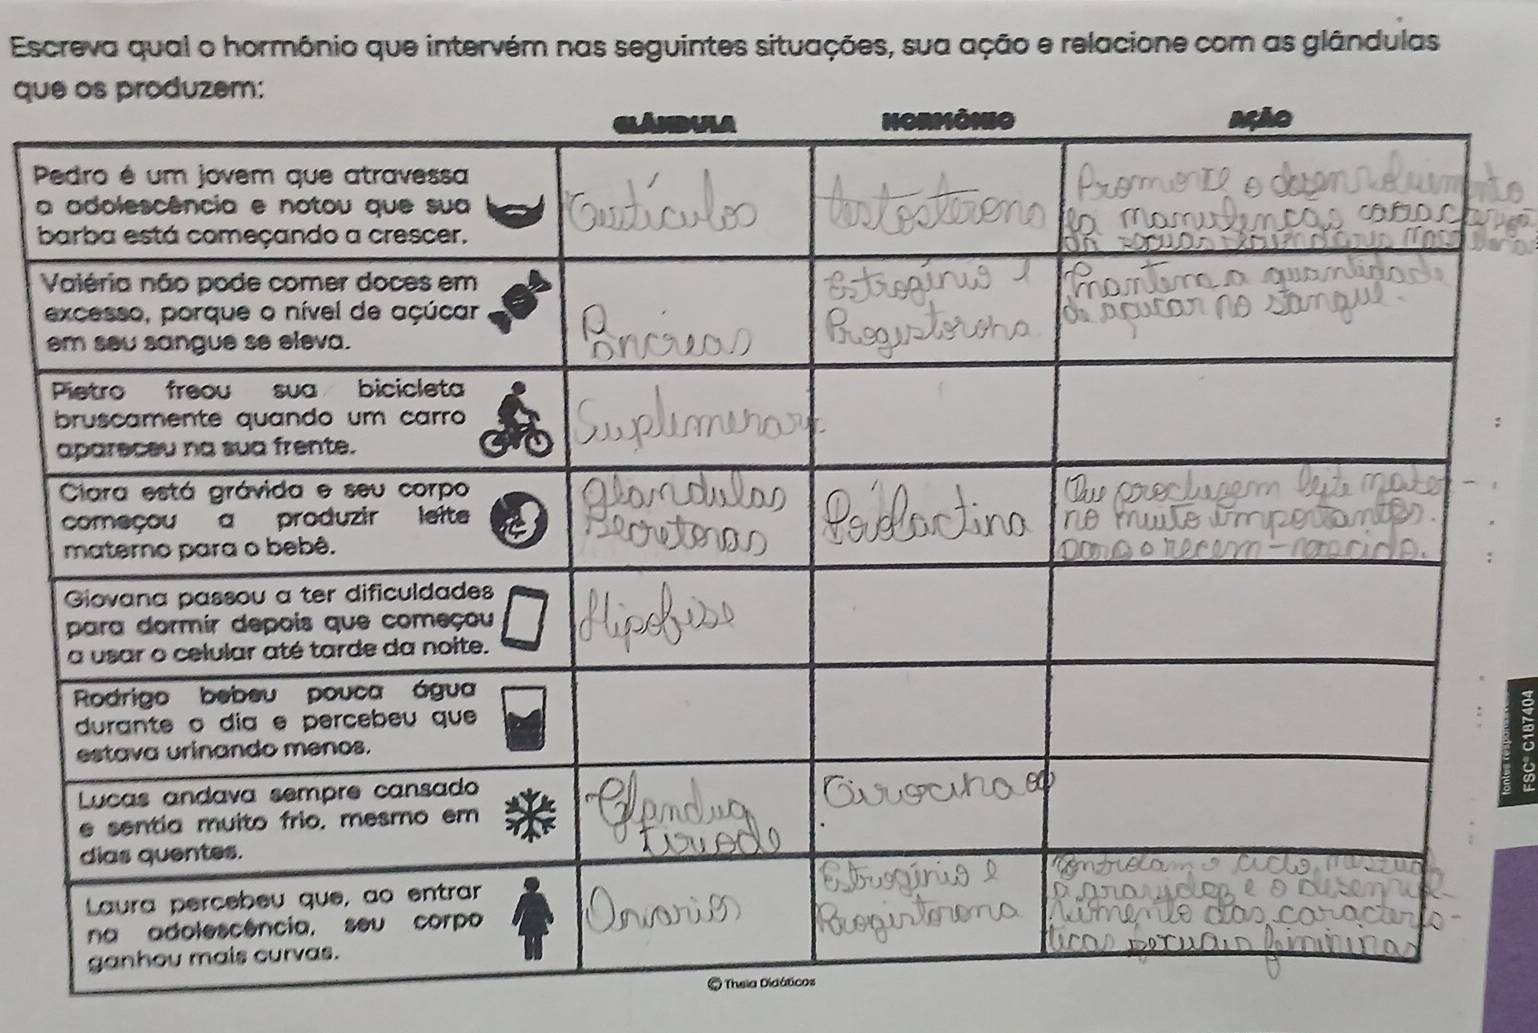 Escreva qual o hormônio que intervém nas seguintes situações, sua ação e relacione com as glândulas
que os produzem:
GLÂNDULA HORMÔNIO AÇÃO
Pedro é um jovem que atravessa
a adolescência e notou que sua
barba está começando a crescer.
testosterona
Promove o desenvolvimento
Valéria não pode comer doces em
excesso, porque o nível de açúcar
em seu sangue se eleva.
Pâncreas
Estrogínio e
Progestorona
Mantem a quantidade
de açucar no sangue.
Pietro freou sua bicicleta
bruscamente quando um carro
apareceu na sua frente.
Suplemenar
Clara está grávida e seu corpo
começou a produzir leite
materno para o bebê.
glandulas
secretoras
Que produzem leite mater-
no muito importantes.
para o recem-nascido.
Giovana passou a ter dificuldades
para dormir depois que começou
a usar o celular até tarde da noite.
Hipofise
Rodrigo bebeu pouca água
durante o dia e percebeu que
estava urinando menos.
Lucas andava sempre cansado
e sentia muito frio, mesmo em
dias quentes.
Laura percebeu que, ao entrar
na adolescência, seu corpo
ganhou mais curvas.
Estrogínio e
Progintorona
o ciclo,
e o desenvol-
vimento das caracteris-
ticas sexuais femininas
© Theia Didáticos
FSC® C187404